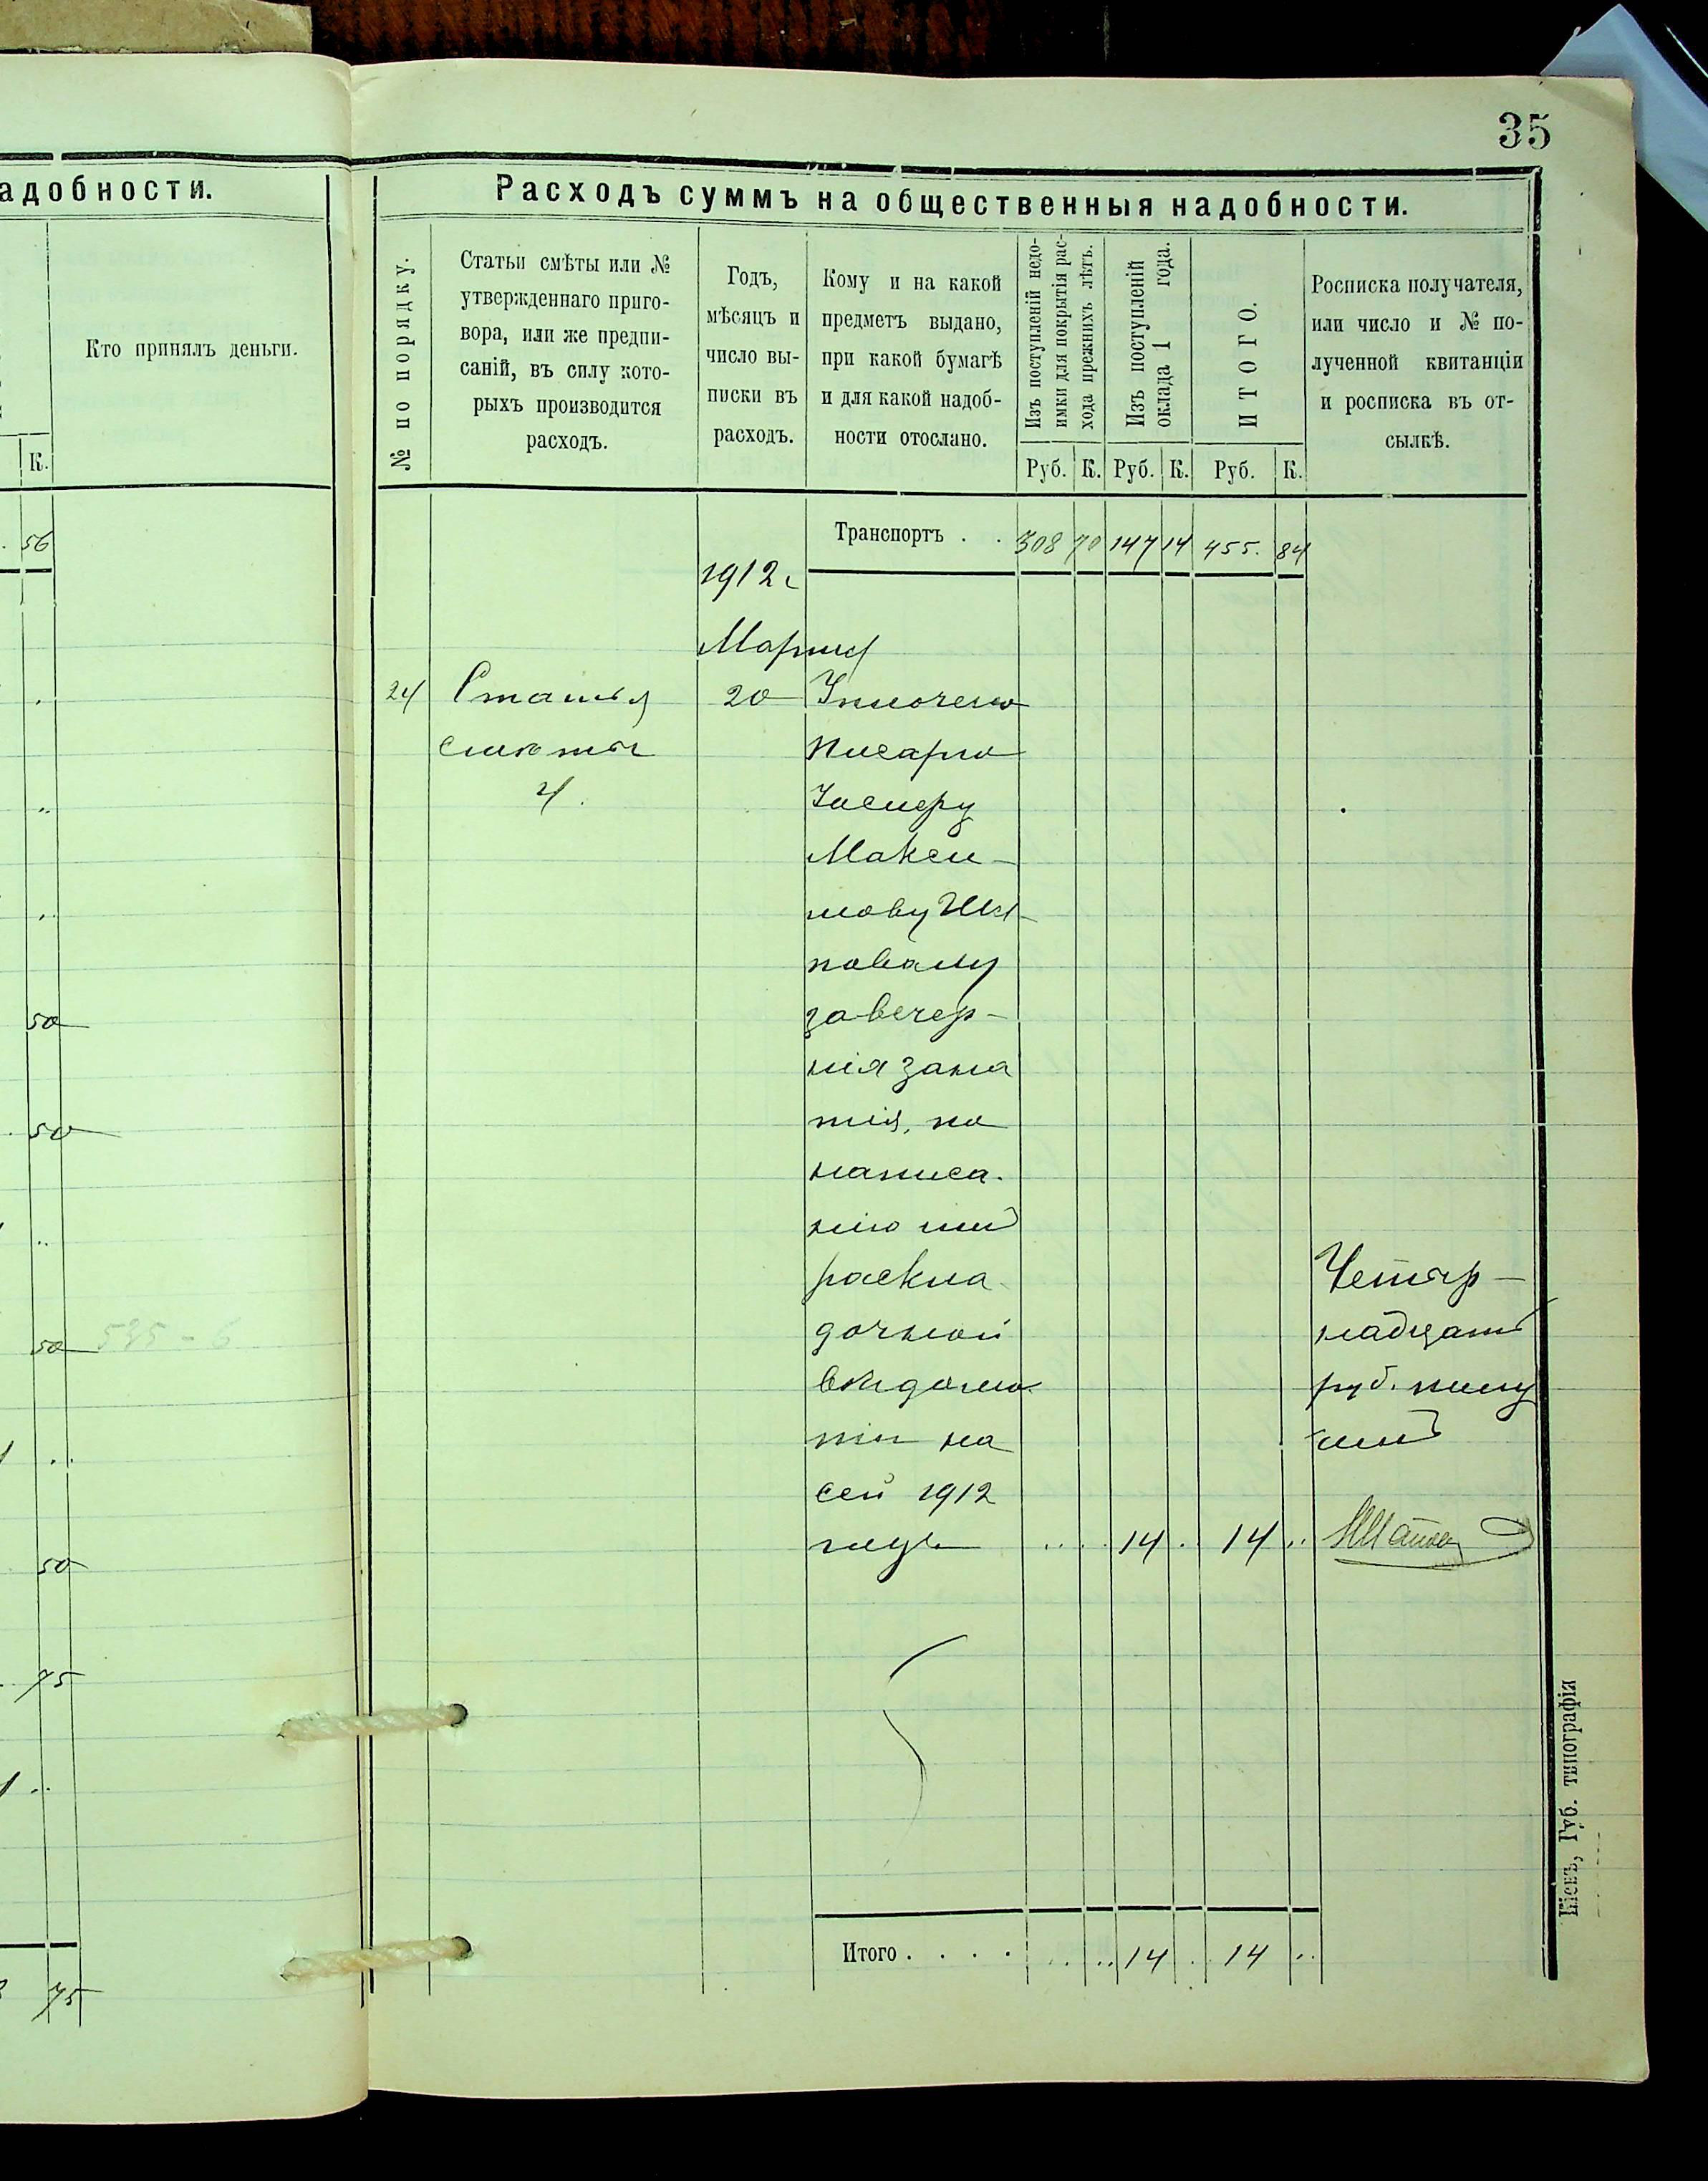 35
адобности.
К.
Кто принялъ деньги.
56
50
50
50
535 - 6
50
75
75
Расходъ суммъ на общественныя надобности.
№ по порядку.
Статьи смѣты или №
утвержденнаго приго-
вора, или же предпи-
саній, въ силу кото-
рыхъ производится
расходъ.
Годъ,
мѣсяцъ и
число вы-
писки въ
расходъ.
Кому и на какой
предметъ выдано,
при какой бумагѣ
и для какой надоб-
ности отослано.
Изъ поступленій недо-
имки для покрытія рас-
хода прежнихъ лѣтъ.
Изъ поступленій
оклада 1 года.
ИТОГО.
Росписка получателя,
или число и № по-
лученной квитанціи
и росписка въ от-
сылкѣ.
Руб. К. Руб. К. Руб. К.
Транспортъ . . 308 70 147 14 455. 84
1912 г
Марта
24 Статья 20
смѣты писарю
4.
Макси-
мову
повалу
за вечер-
нія заня
тія, по
написа-
нію имъ
раскла
дочной
вѣдомо
сти на
сей 1912
годъ .. .. 14 .. 14 ..
Четыр-
надцать
руб. получ
илъ
Итого . . . . .. .. 14 .. 14 ..
Кіевъ, Губ. типографія